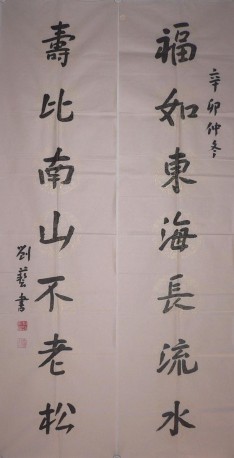 辛卯仲冬
福如東海長流水
壽比南山不老松
劉藝書